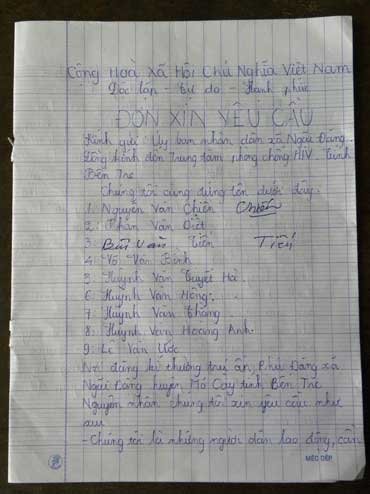 Cộng Hoà Xã Hội Chủ Nghĩa Việt Nam
Độc lập - tự do - Hạnh phúc
ĐƠN XIN YÊU CẦU
Kính gửi: Ủy ban nhân dân xã Ngãi Đăng.
Đồng kính đơn trung tâm phòng chống HIV. Tỉnh
Bến Tre
Chúng tôi cùng đứng tên dưới đây.
1. Nguyễn Văn Chiến Chiến
2: Phan Văn Việt
3 Bùi Văn Tiến Tiến
4 Võ Văn Bình
5 Huỳnh Văn Tuyết Hà.
6: Huỳnh Văn Hồng.
7: Huỳnh Văn Thắng.
8: Huỳnh Văn Hoàng Anh.
9: Lê Văn Ước
Nơi đăng kí thường trú ấp, Phú Đăng xã
Ngãi Đăng huyện Mỏ Cày tỉnh Bến Tre
Nguyên nhân chúng tôi xin yêu cầu như
sau
- Chúng tôi là những người dân lao động, cần
MÈO DÉP